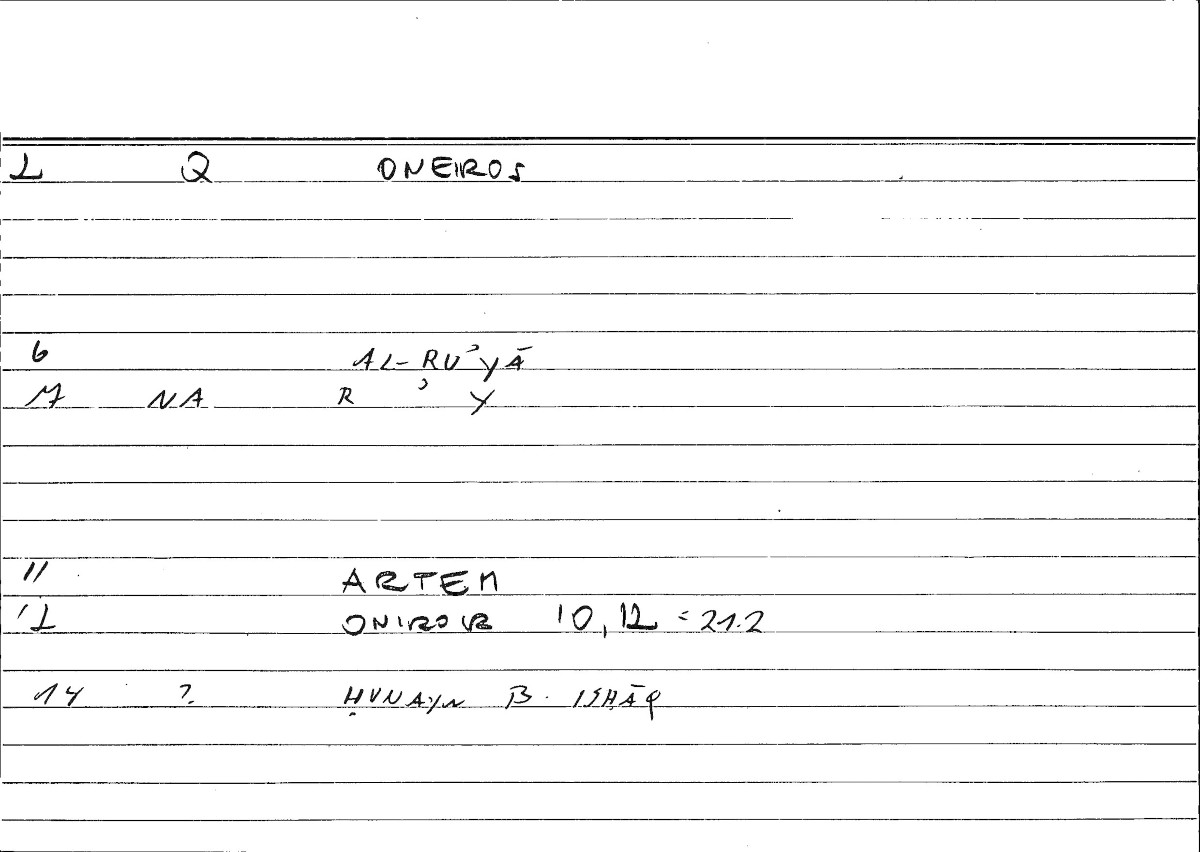 2 Q ONEIROS
6 AL-RUʾYĀ
17 NA R ʾ Y
11 ARTEM
12 ONIROCR 10,12 = 21.2
14 ? ḤUNAYN B. ISḤĀQ